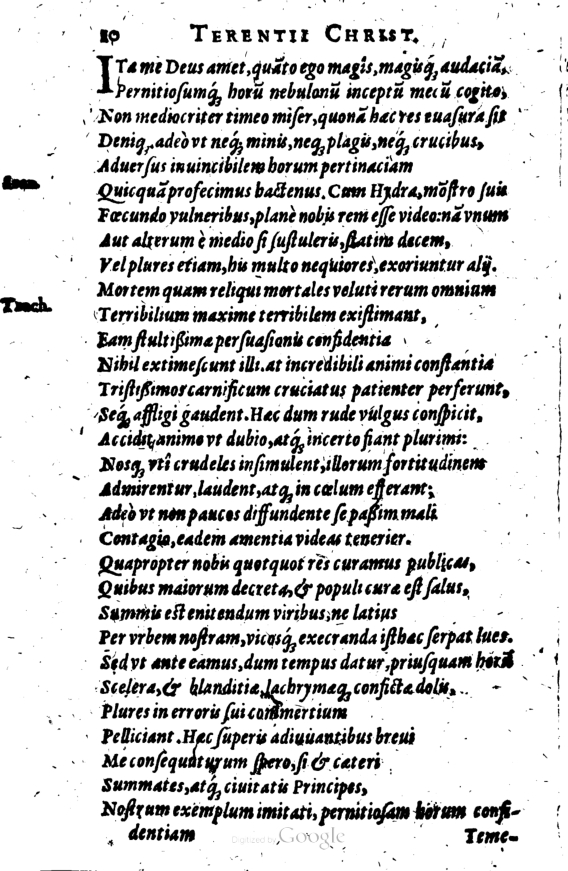 20 TERENTII CHRIST.
ITa me Deus amet, quāto ego magis, magisq́; audaciā,
Pernitiosumq́; horū nebulonū inceptū mecū cogito,
Non mediocriter timeo miser, quonā hæc res euasura sit
Deniq; adeò vt neq́; minis, neq; plagis, neq́; crucibus,
Aduersus inuincibilem horum pertinaciam
Quicquā profecimus hactenus. Cum Hydra, mōstro suis
Fœcundo vulneribus, planè nobis rem esse video: nā vnum
Aut alterum è medio si sustuleris, statim decem,
Vel plures etiam, his multo nequiores, exoriuntur alij.
Mortem quam reliqui mortales veluti rerum omnium
Trach.
Terribilium maxime terribilem existimant,
Eam stultißima persuasionis confidentia
Nihil extimescunt illi. at incredibili animi constantia
Tristißimos carnificum cruciatus patienter perferunt,
Seq́; affligi gaudent. Hæc dum rude vulgus conspicit,
Accidit, animo vt dubio, atq́; incerto fiant plurimi:
Nosq; vti crudeles insimulent, illorum fortitudinem
Admirentur, laudent, atq; in cœlum efferant;
Adeò vt non paucos diffundente se paßim mali
Contagio, eadem amentia videas tenerier.
Quapropter nobis quotquot res curamus publicas,
Quibus maiorum decreta, & populi cura est salus,
Summis est enitendum viribus, ne latius
Per vrbem nostram, vicosq́; execranda isthæc serpat lues.
Sed vt ante eamus, dum tempus datur, priusquam horū
Scelera, & blanditiæ, lachrymæq; confictæ dolis,
Plures in erroris sui commertium
Pelliciant. Hæc superis adiuuantibus breui
Me consequuturum spero, si & cæteri
Summates, atq́; ciuitatis Principes,
Nostrum exemplum imitati, pernitiosam horum confi-
dentiam Teme-
Digitized by Google